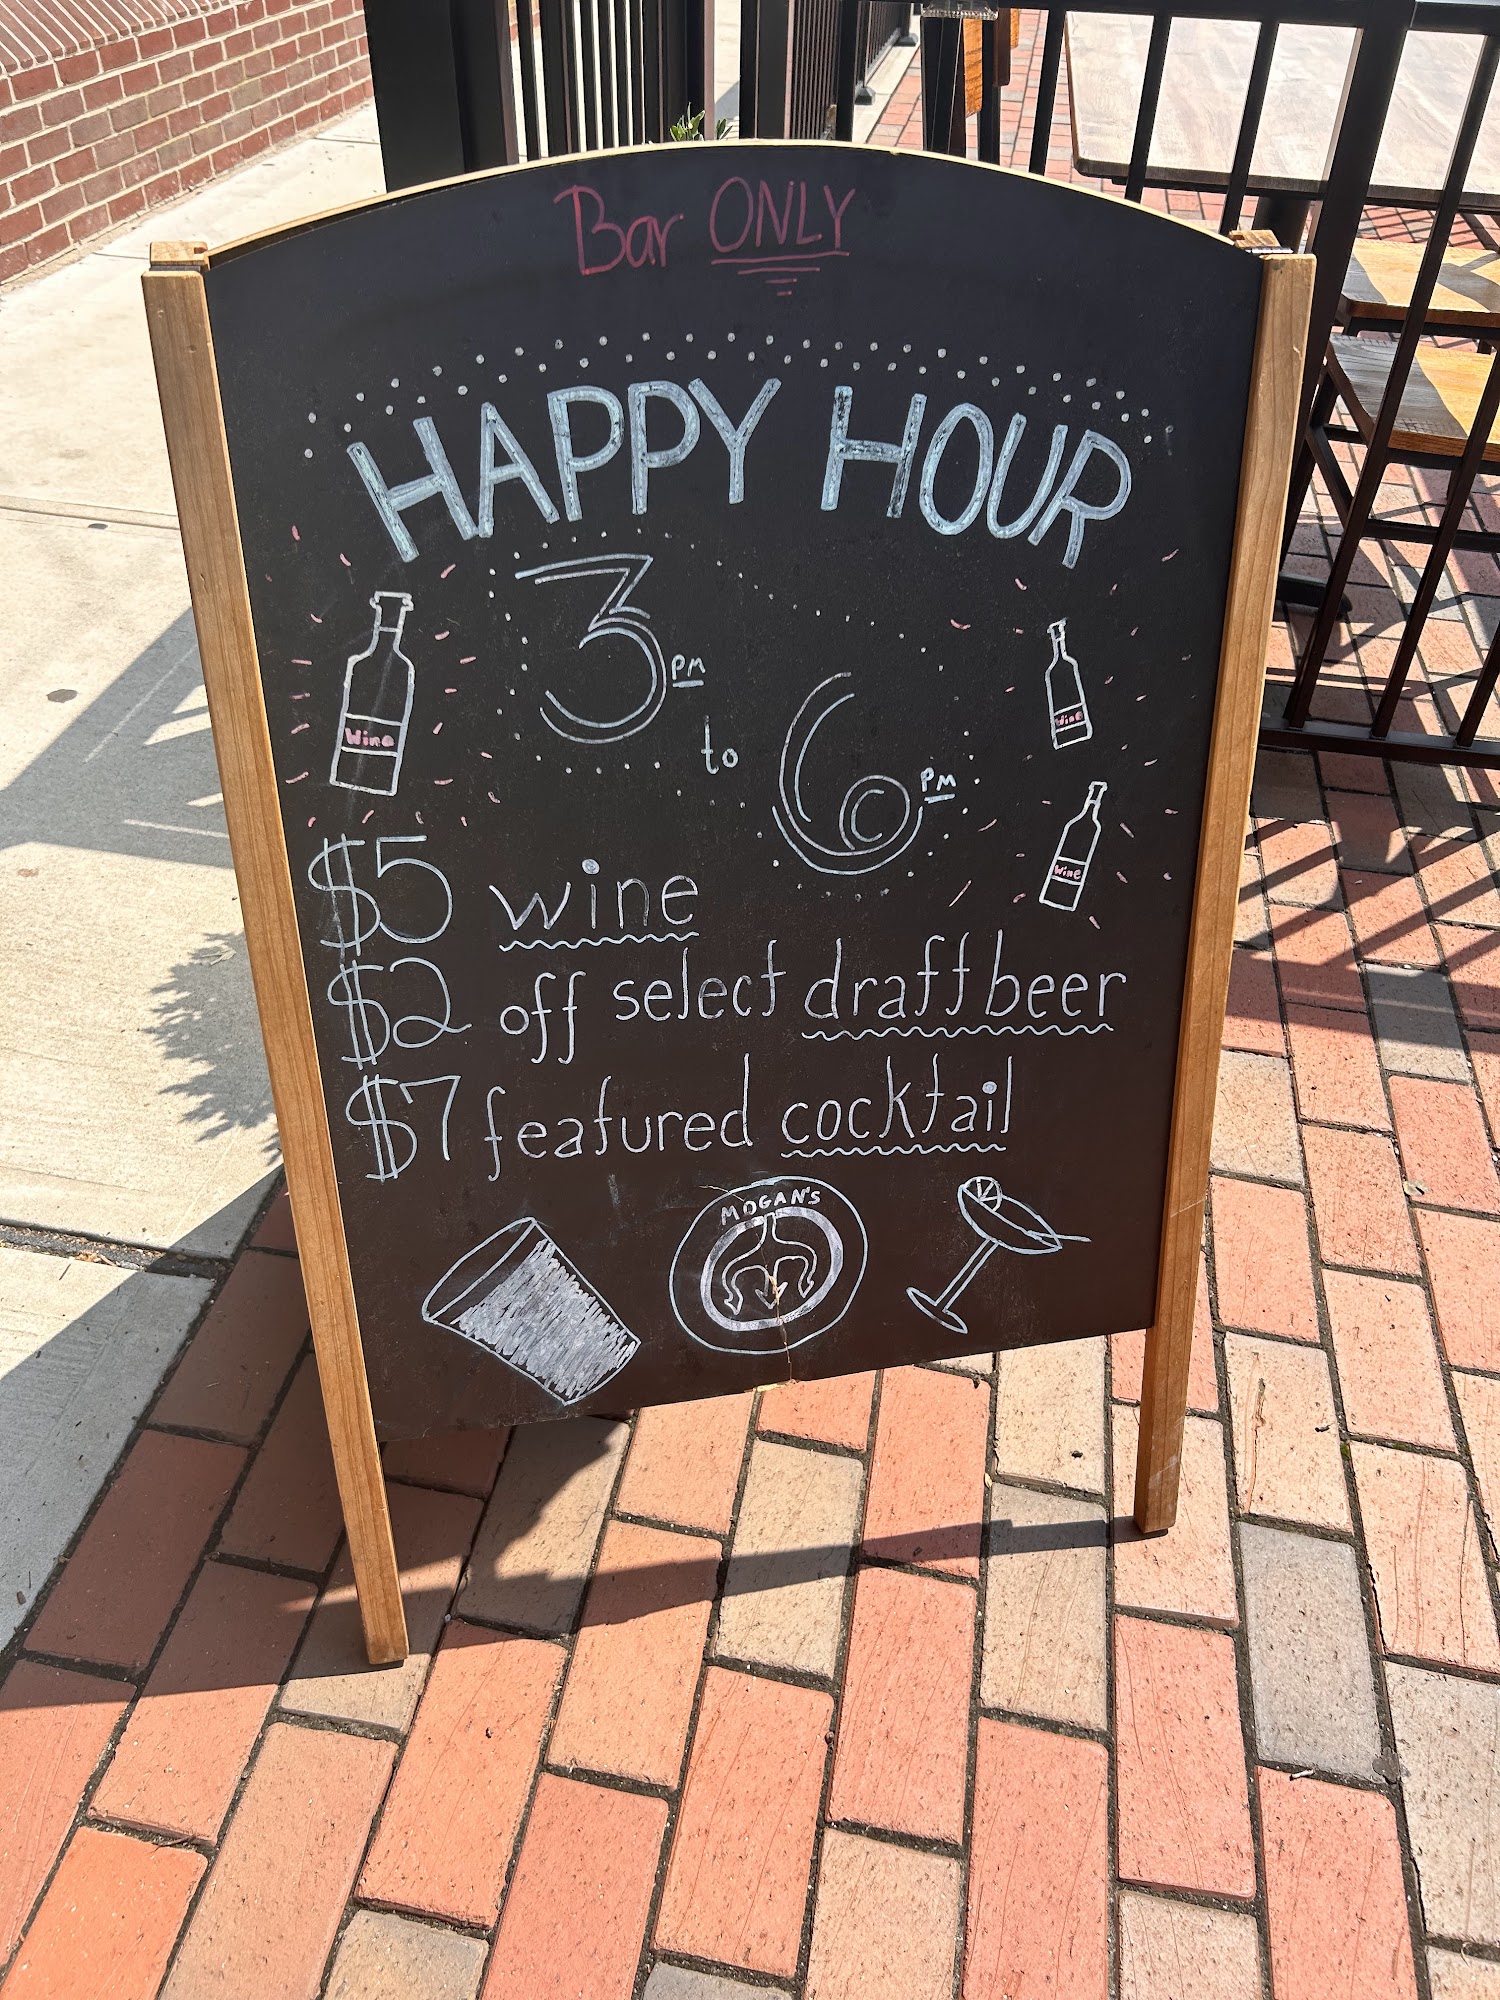 Bar ONLY
HAPPY HOUR
3 PM
to
6 PM
Wine
Wine
Wine
$5 wine
$2 off select draft beer
$7 featured cocktail
MOGAN'S